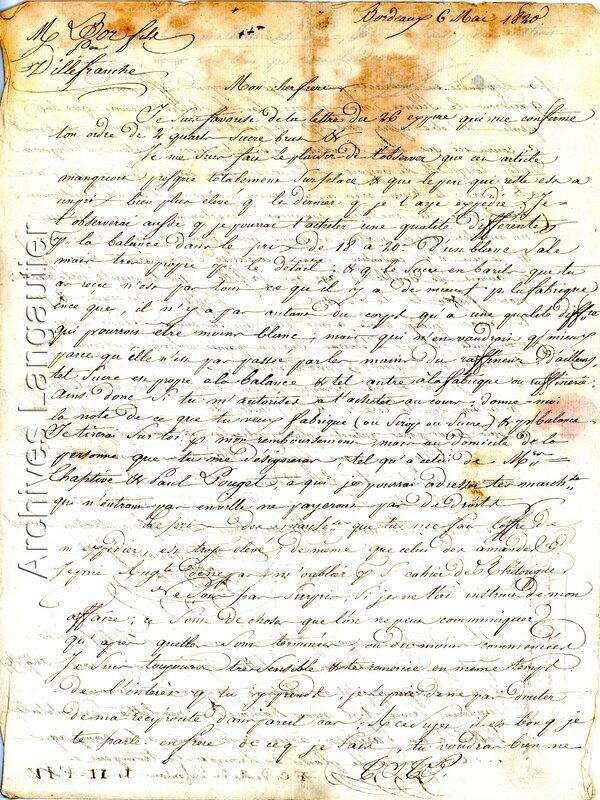 Bordeaux 6 Mai 1820
Mr Bor fils
Villefranche
Mon cher frere
Je suis favorisé de ta lettre du 26 expiré qui me confirme
ton ordre de 2 quarts sucre brut &
Je me suis fait le plaisir de t'observer que cet article
manquoit presque totalement sur place & que le peu qui reste est a
un prix bien plus elevé q le dernier q je t'aye expedié. Je
t'observerai aussi q je pourrai t'acheter une qualité differente
pr la balance dans le prix de 18 a 20 d'un blanc sale
mais tres propre pr le détail, & q le sucre en barils que tu
as recu n'est pas tout ce que il y a de mieux p. la fabrique
en ce que, il n'y a pas autant du corps qu'a une qualité diffte
qui pourroit etre moins blanc, mais qui n'en vaudrais q mieux
parce qu'elle n'est pas passé par les mains du raffineur d'ailleurs
tel sucre est propre a la balance & tel autre a la fabrique ou raffinerie.
Ainsi donc si tu m'autorises a t'acheter au cours, donne-moi
la note de ce que tu veux fabrique (ou sirop ou sucre) & pr balance
Je tirerai sur toi, pr mon remboursement, mais au domicile de la
personne que tu me désigneras, tel qu'a celui de Mrs
Chaptive & Paul Pouget, a qui je pourrai adresser les marchses
qui n'entrant pas en ville ne payeront pas de droits
Le prix des que tu me fais l'offre de
m'expedier, est trop elevé, de meme que celui des amandes
Je prie Augte de ne pas m'oublier pr le cahier de Rhétorique
Ne sois pas surpris si je ne t'ai instruit de mon
affaire; ce sont de choses que l'on ne peux communiquer
qu'après quelles sont terminées, ou du moins commencées
Je suis toujours tres sensible & te remercie en meme temps
de l'interet q tu y prends, je te prie de ne pas douter
de ma reciprocité d'un pareil cas. A ce sujet, il est bon q je
te parle en frere de ce q je sais, tu voudras bien ne
Archives Langautier